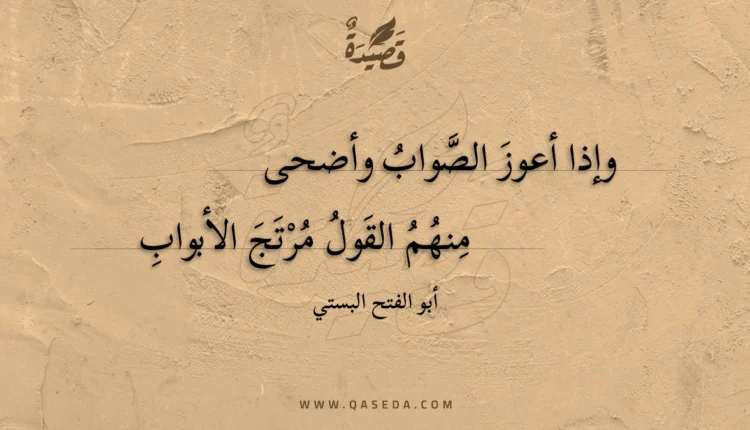 قَصِيْدَةٌ
وإذا أعوزَ الصَّوابُ وأضحى
مِنهُمُ القَولُ مُرْتَجَ الأبوابِ
أبو الفتح البستي
WWW.QASEDA.COM